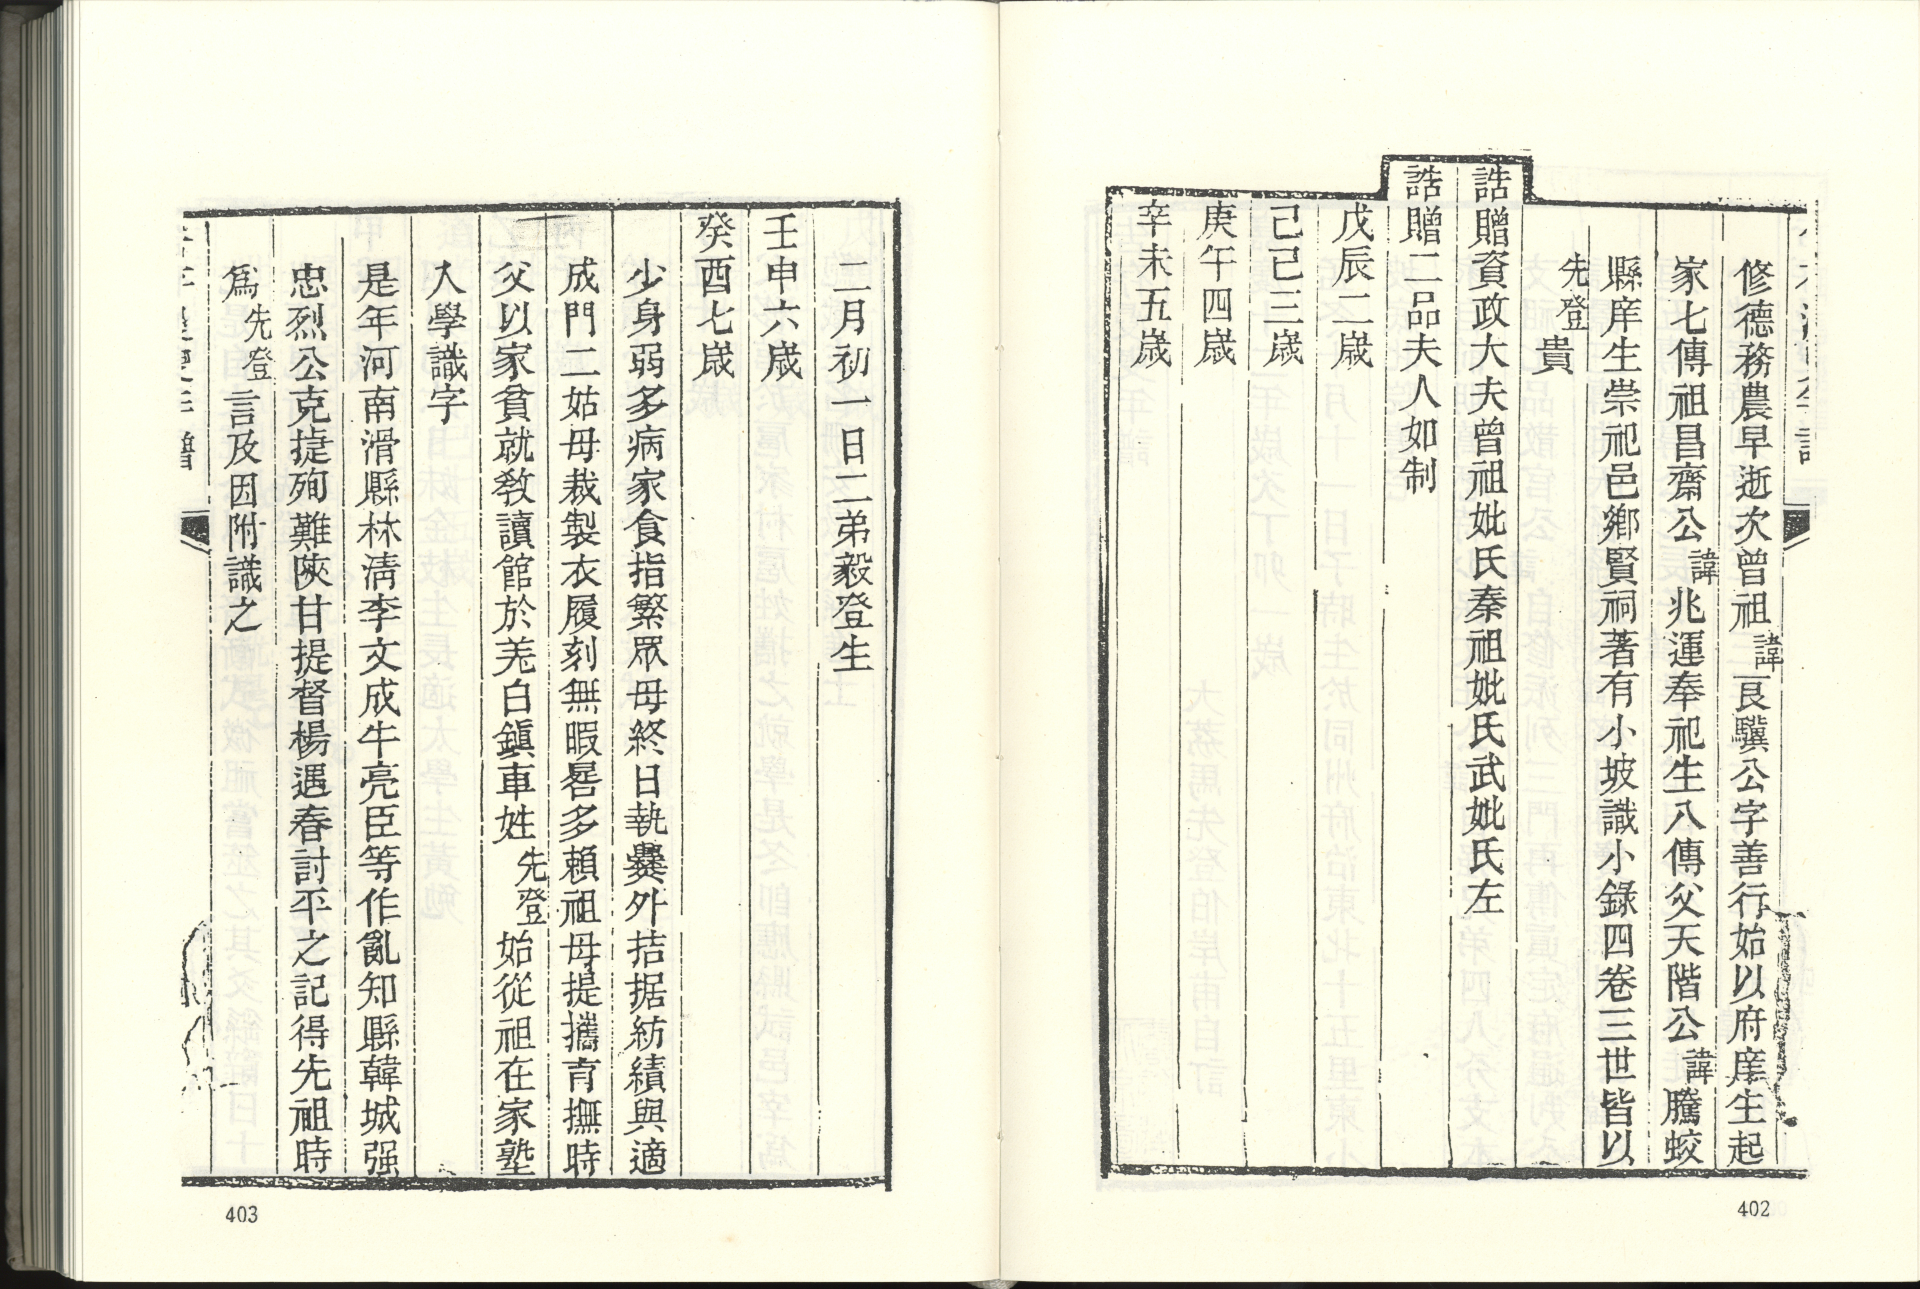 修德務農早逝次曾祖諱良驥公字善行始以府庠生起
家七傳祖昌齋公諱兆運奉祀生八傳父天階公諱騰蛟
縣庠生崇祀邑鄉賢祠著有小坡識小錄四卷三世皆以
先登貴
誥贈資政大夫曾祖妣氏秦祖妣氏武妣氏左
誥贈二品夫人如制
戊辰二歲
己巳三歲
庚午四歲
辛未五歲
402
二月初一日二弟毅登生
壬申六歲
癸酉七歲
少身弱多病家食指繁眾母終日執爨外拮据紡績與適
成門二姑母裁製衣履刻無暇晷多賴祖母提攜育撫時
父以家貧就敎讀館於羌白鎭車姓先登始從祖在家塾
入學識字
是年河南滑縣林淸李文成牛亮臣等作亂知縣韓城强
忠烈公克捷殉難陝甘提督楊遇春討平之記得先祖時
爲先登言及因附識之
403